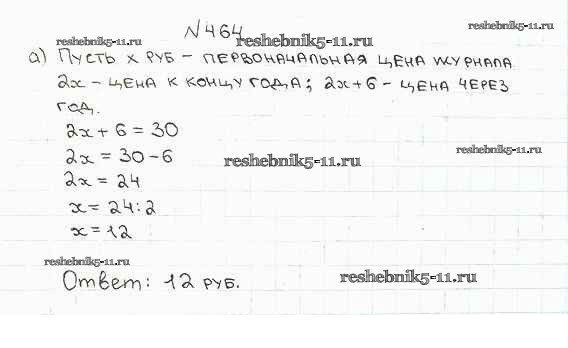 №464
reshebnik5-11.ru
reshebnik5-11.ru
reshebnik5-11.ru
а) Пусть x руб – первоначальная цена журнала
2x – цена к концу года; 2x+6 – цена через
год.
2x + 6 = 30
2x = 30 – 6
reshebnik5-11.ru
reshebnik5-11.ru
2x = 24
x = 24:2
x = 12
reshebnik5-11.ru
Ответ: 12 руб.
reshebnik5-11.ru